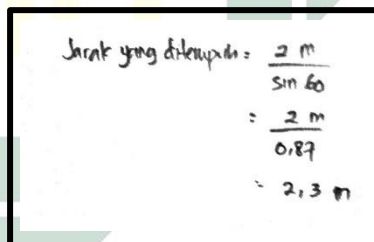 Jarak yang ditempuh = 2 m / sin 60
= 2 m / 0,87
= 2,3 m